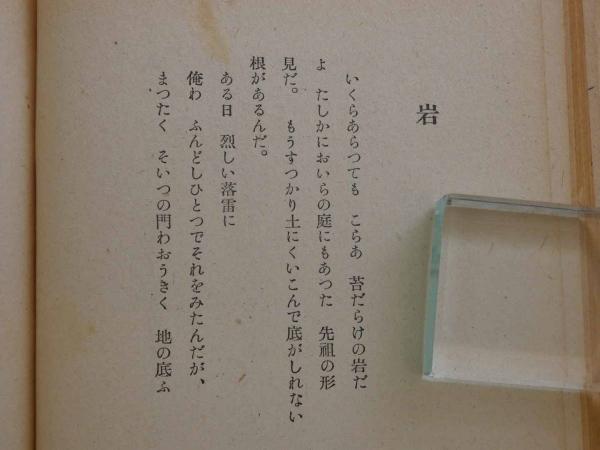 岩
いくらあらつても　こらあ　苔だらけの岩だ
よ　たしかにおいらの庭にもあつた　先祖の形
見だ。　もうすつかり土にくいこんで底がしれない
根があるんだ。
ある日　烈しい落雷に
俺わ　ふんどしひとつでそれをみたんだが、
まつたく　そいつの門わおうきく　地の底ふ